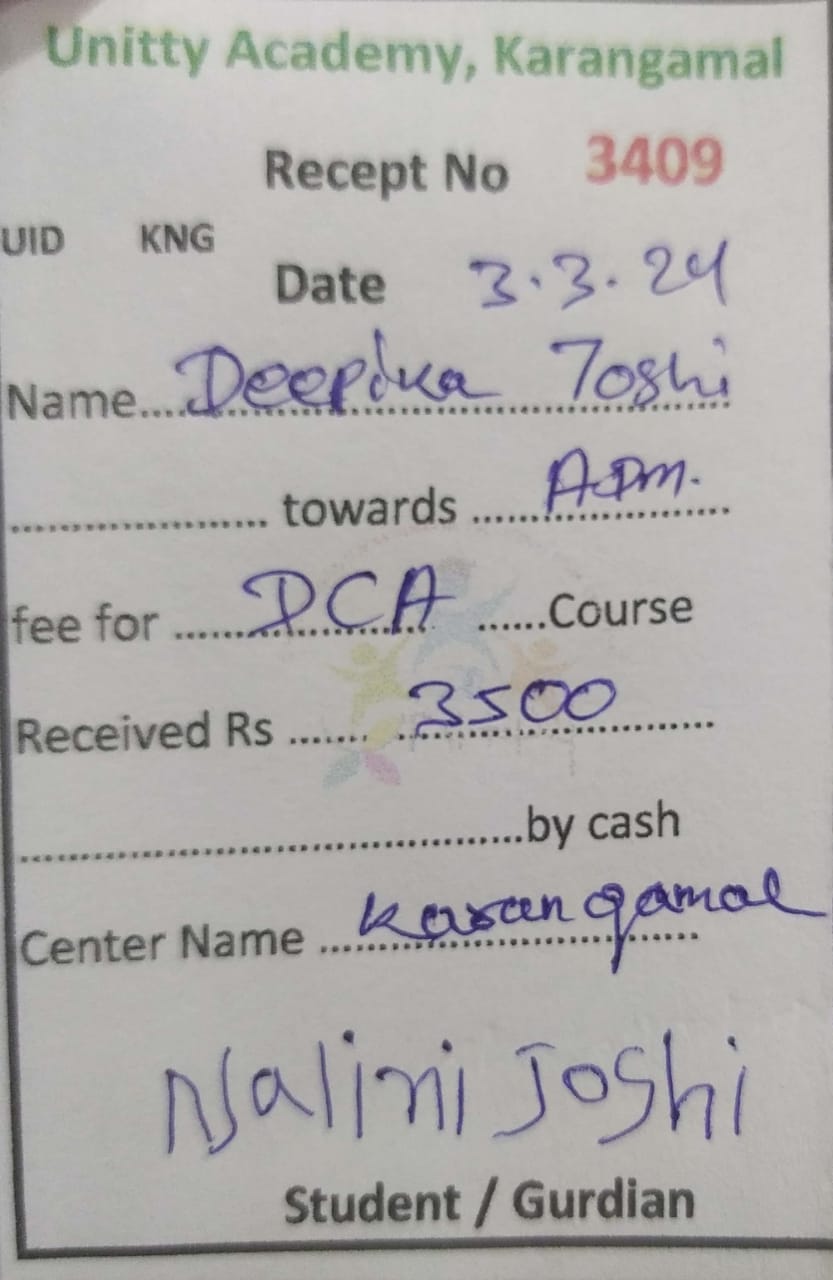 Unitty Academy, Karangamal
Recept No 3409
UID KNG
Date 3.3.24
Name....Deepika Joshi
..................... towards ......ADM.
fee for ......DCA ......Course
Received Rs ....... 3500
........................................by cash
Center Name ....Karangamal
Nalini Joshi
Student / Gurdian